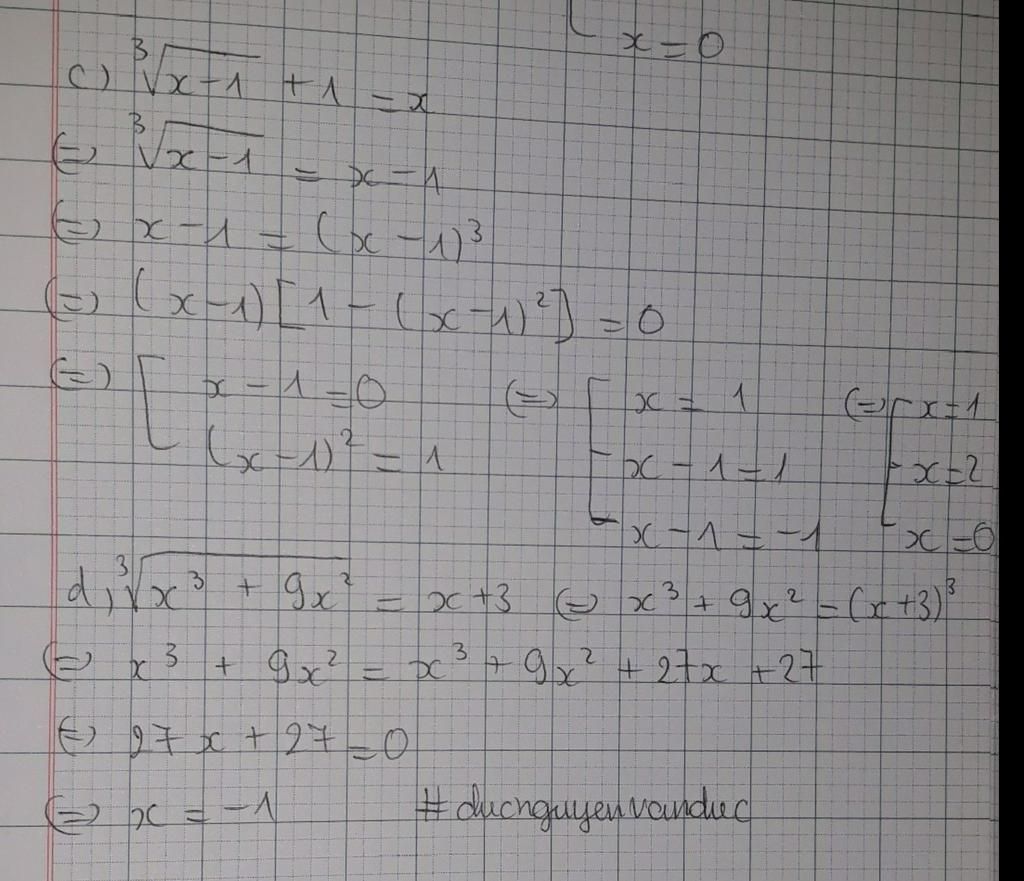 x = 0
c) ∛(x-1) + 1 = x
(=) ∛(x-1) = x - 1
(=) x - 1 = (x - 1)³
(=) (x - 1)[1 - (x - 1)²] = 0
(=) [ x - 1 = 0 (=) [ x = 1 (=) [ x = 1
(x - 1)² = 1 x - 1 = 1 x = 2
x - 1 = -1 x = 0
d, ∛(x³ + 9x²) = x + 3 (=) x³ + 9x² = (x + 3)³
(=) x³ + 9x² = x³ + 9x² + 27x + 27
(=) 27x + 27 = 0
(=) x = -1 #ducnguyenvanduc